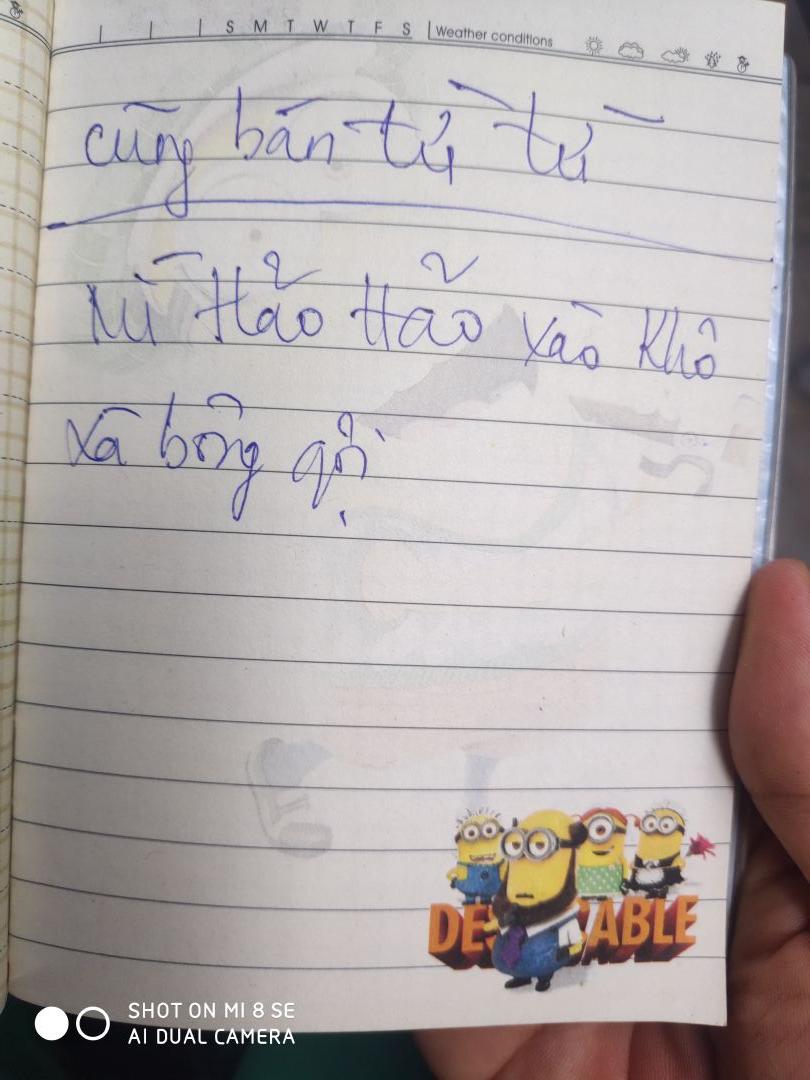 S M T W T F S Weather conditions
cũng bán từ từ
Mì Hảo Hảo xào khô
xà bông gội
SHOT ON MI 8 SE
AI DUAL CAMERA